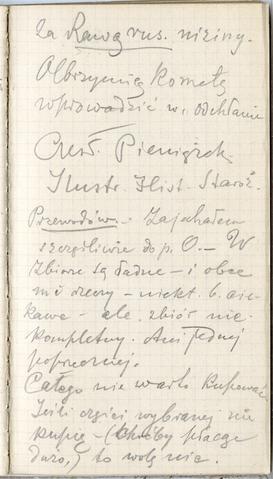 za Rawą rus. niziny.
Olbrzymią Kometę
wprowadzić w. odchłanie
Czesł. Pieniążek.
Ilustr. Hist. Staroż.
Przewodów. - Zajechałem
szczęśliwie do p. O. - W
Zbiorze są ładne - i obce
mi rzeczy - niekt. b. cie-
kawe - ale zbiór nie-
kompletny. Ani jednej
poprzedniej.
Całego nie warto kupować
Jeśli części wybranej nie
kupię - (choćby płacąc
dużo,) to wolę nic.